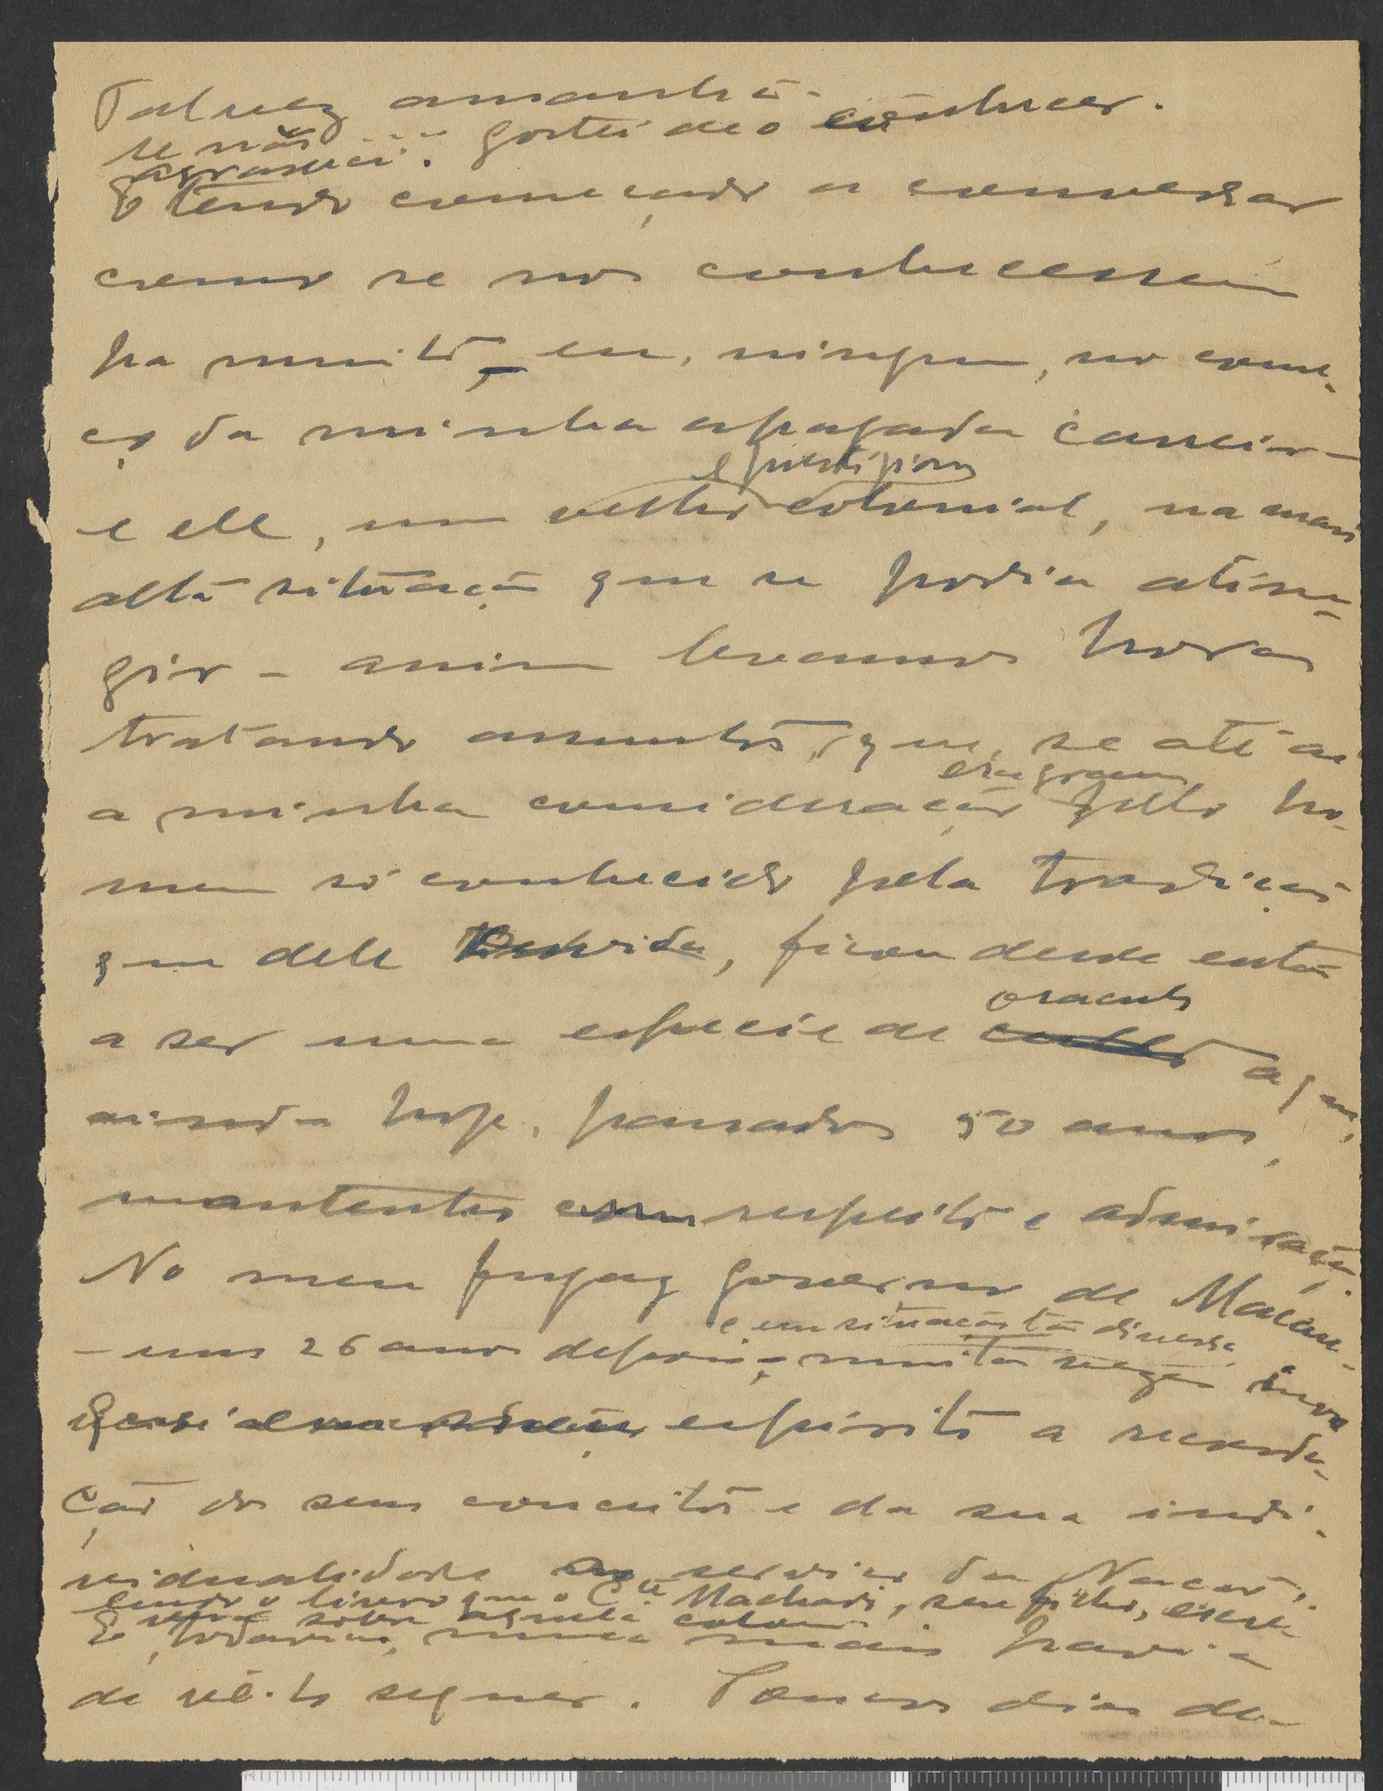 Talvez amanhã...
se não . . . gostei de o conhecer.
E tendo começado a conversar
como se nos conhecessem
ha muito, eu, ninguem, no come-
ço da minha apagada carreira
e prestigioso
e ele, um velho colonial, na mais
alta situação que se podia atin-
gir - assim levamos horas
tratando assuntos, que, se até aí
era grande
a minha consideração pelo ho-
mem só conhecido pela tradição
que dele havia, ficou desde então
oraculo
a ser uma especie de culto a que,
ainda hoje, passados 50 anos,
mantenho com respeito e admiração.
No meu fugaz governo de Macau
e em situação tão diversa
- uns 26 anos depois, muitas vezes
espirito a recorda-
ção dos seus conceitos e da sua indi-
vidualidade ao serviço da Nação,
lendo o livro que o C.te Machado, seu filho, escre-
veu sobre aquela colonia
E, todavia, nunca mais havia
de vê-lo sequer. Poucos dias de-